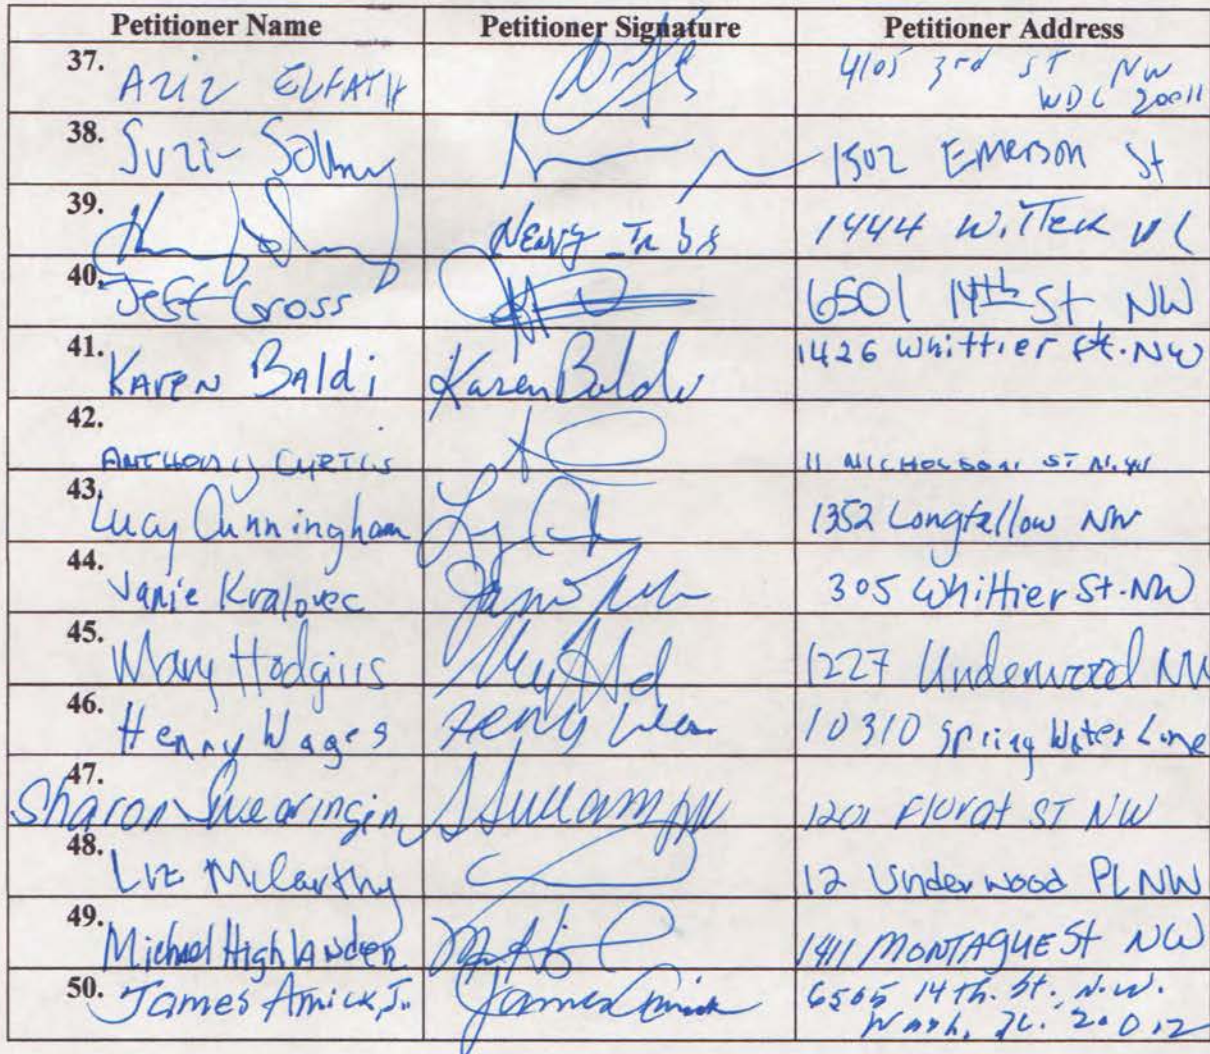 Petitioner Name Petitioner Signature Petitioner Address
37. Aziz ELFATH 4105 3rd ST NW
WDC 20011
38. Suzi 1502 Emerson St
39. 1444
40. Jeff Gross 6501 14th St, NW
41. Karen Baldi Karen Baldi 1426 Whittier St. NW
42. ANTHONY CURTIS 11 NICHOLSON ST N.W
43. Lucy Cunningham 1352 Longfellow NW
44. Janie Kralovec 305 Whittier St. NW
45. Mary Hodgins 1227 Underwood NW
46. Henny Wages 10310 Spring Water Lane
47. Sharon Swearingin 1201 ST NW
48. Liz McCarthy 12 Underwood PL NW
49. Michael Highlander 1411 MONTAGUE St NW
50. James Amick, Jr. James Amick 6505 14th. St. N.W.
Wash. DC. 20012